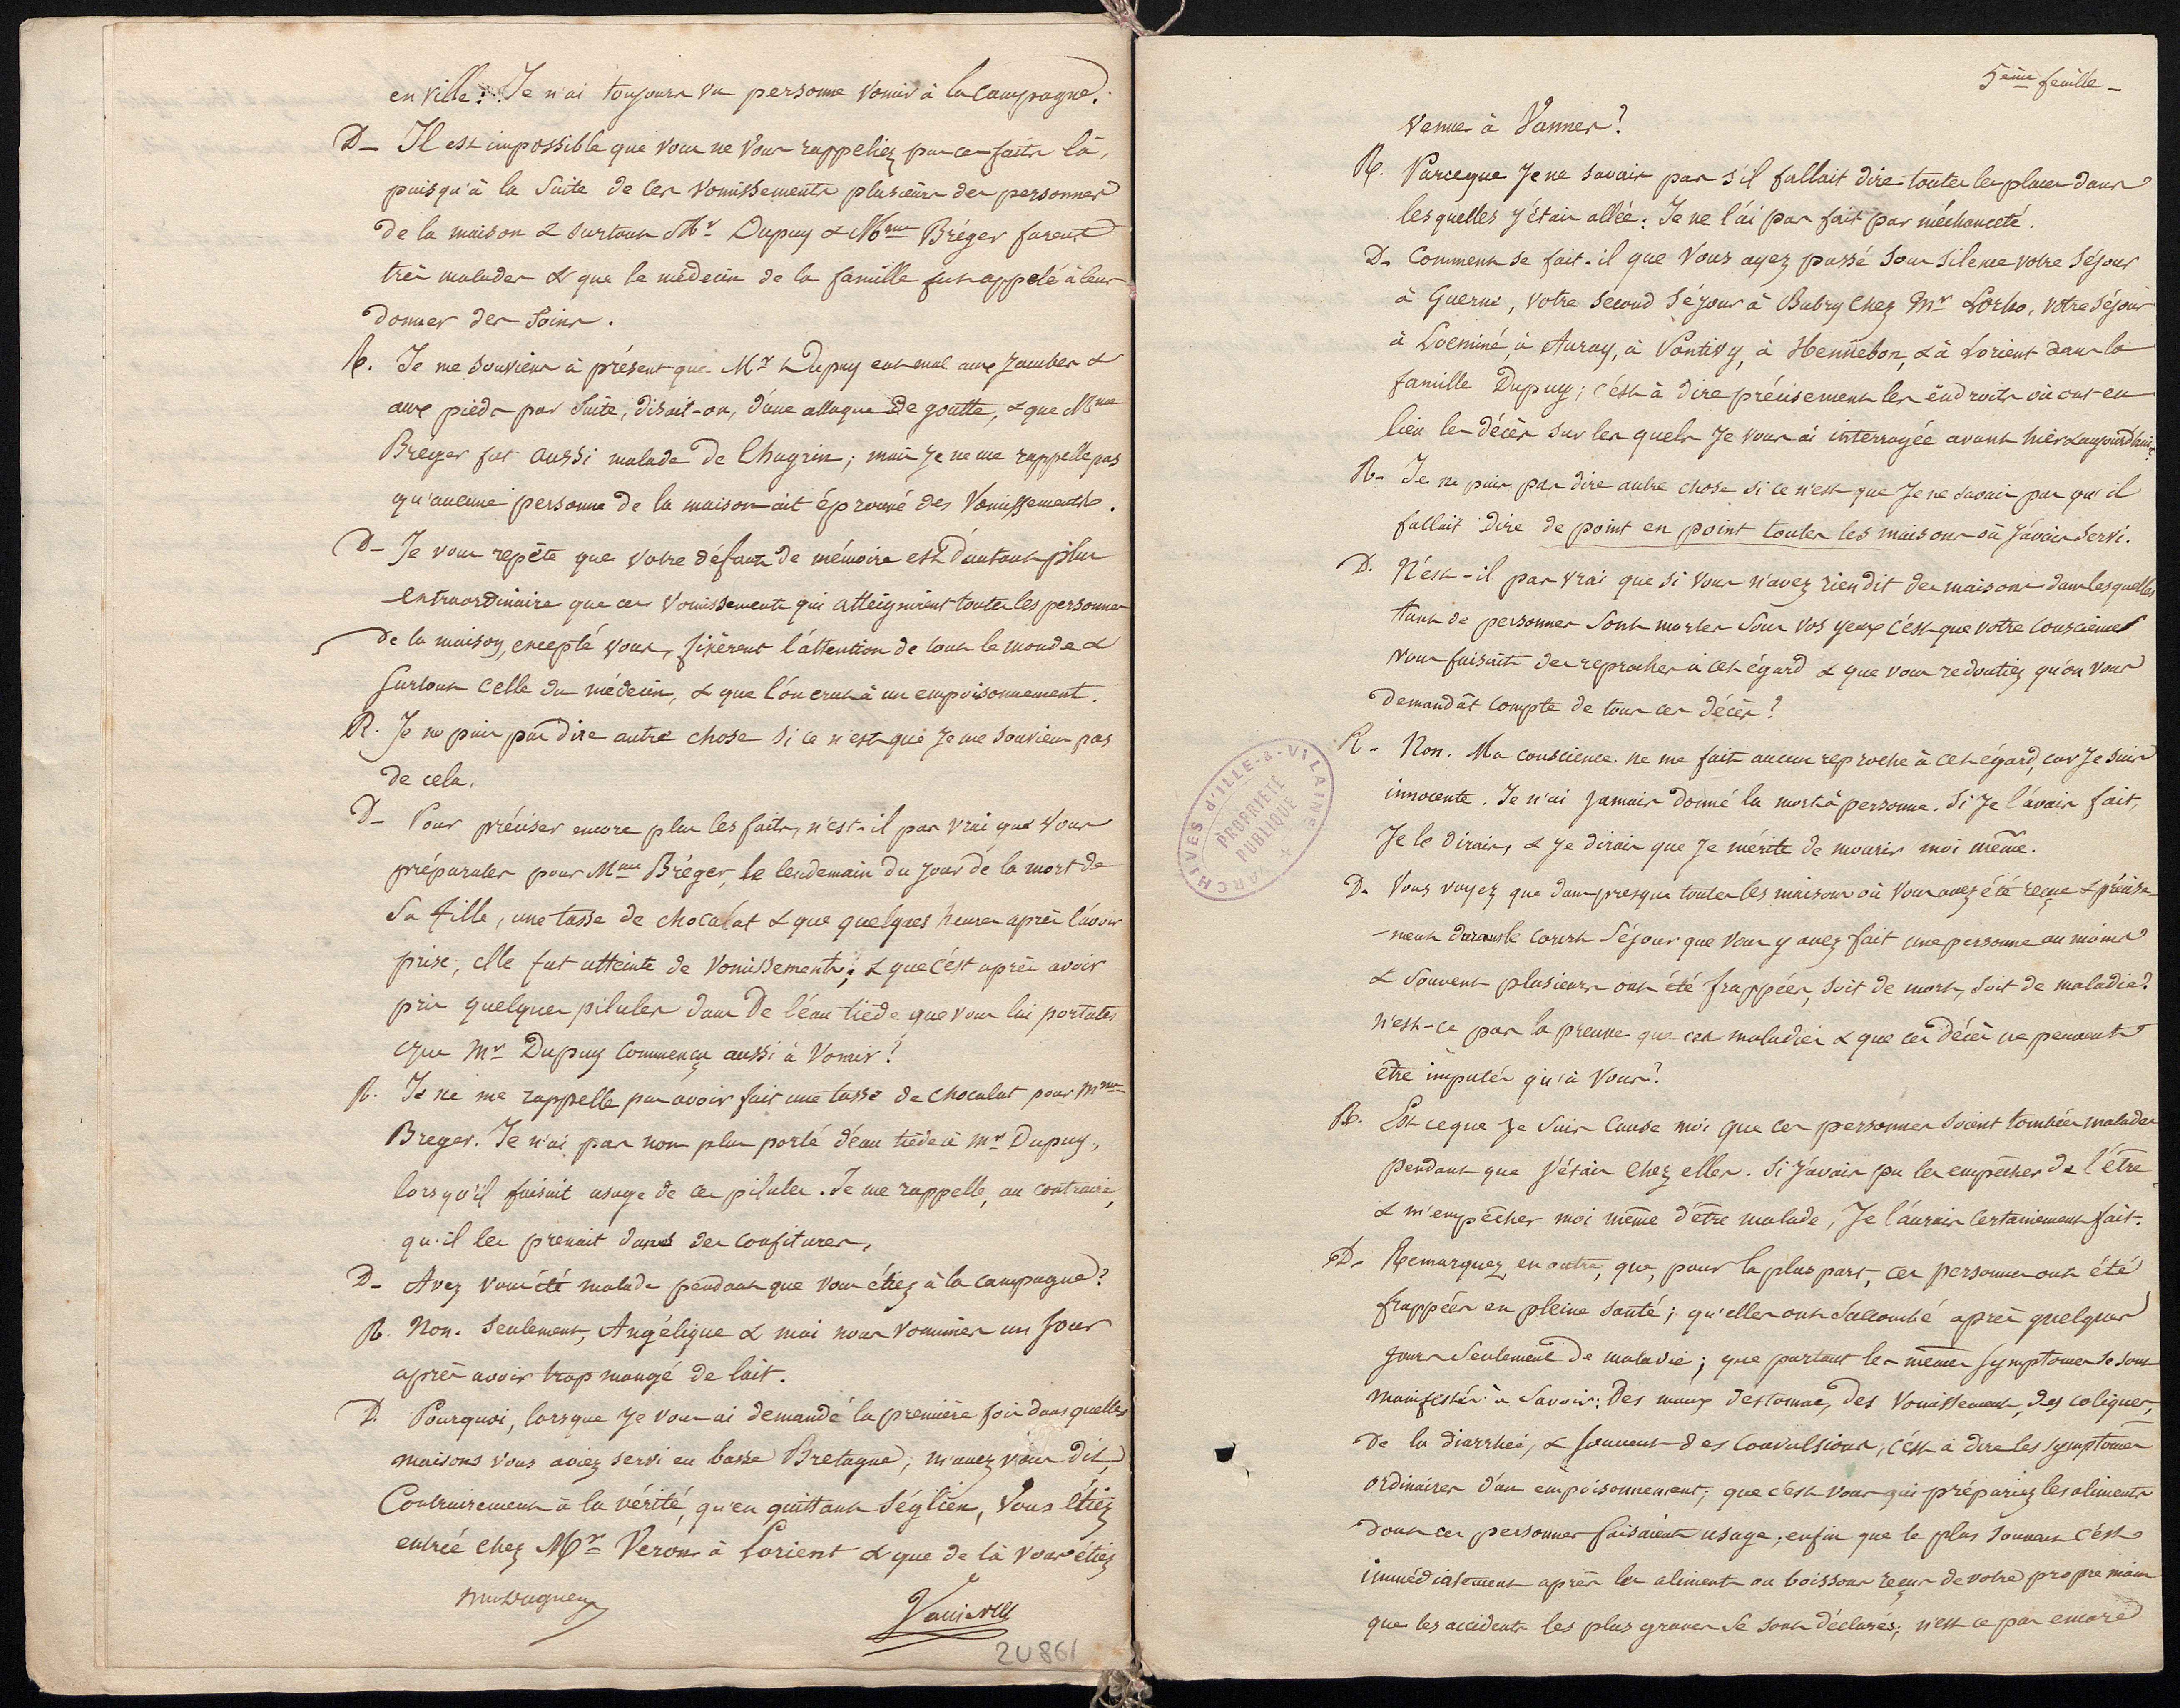 en ville. Je n'ai toujours vu personne vomir à la campagne.
D- Il est impossible que vous ne vous rappeliez pas ces faits là,
puisqu'à la suite de ces vomissements plusieurs des personnes
de la maison & surtout Mr Dupuy & Mme Bréger furent
très malades & que le médecin de la famille fut appelé à leur
donner des soins.
R. Je me souviens à présent que Mr Dupuy eut mal aux jambes &
aux pieds par suite, disait-on, d'une attaque de goutte, & que Mme
Bréger fut aussi malade de chagrin; mais je ne me rappelle pas
qu'aucune personne de la maison ait éprouvé des vomissements.
D- Je vous repète que votre défaut de mémoire est d'autant plus
extraordinaire que ces vomissements qui atteignirent toutes les personnes
de la maison, excepté vous, fixèrent l'attention de tout le monde &
surtout celle du médecin, & que l'on crut à un empoisonnement.
R. Je ne puis pas dire autre chose si ce n'est que je me souviens pas
de cela.
D- Pour préciser encore plus les faits, n'est-il pas vrai que vous
préparates pour Mme Bréger, le lendemain du jour de la mort de
sa fille, une tasse de chocolat & que quelques heures après l'avoir
prise, elle fut atteinte de vomissements; & que c'est après avoir
pris quelques pilules dans de l'eau tiède que vous lui portates
que Mr Dupuy commença aussi à vomir?
R. Je ne me rappelle pas avoir fait une tasse de chocolat pour Mme
Breger. Je n'ai pas non plus porté d'eau tiède à Mr Dupuy,
lorsqu'il faisait usage de ces pilules. Je me rappelle, au contraire,
qu'il les prenait dans des confitures.
D- Avez vous été malade pendant que vous étiez à la campagne?
R. Non. Seulement, Angélique & moi nous vomimes un jour
après avoir trop mangé de lait.
D. Pourquoi, lorsque je vous ai demandé la première fois dans quelles
maisons vous aviez servi en basse Bretagne, m'avez vous dit,
Contrairement à la vérité, qu'en quittant Séglien, vous étiez
entrée chez Mr Veron à Lorient & que de là vous étiez
2U861
5ème feuille-
venue à Vannes?
R. Parceque je ne savais pas s'il fallait dire toutes les places dans
lesquelles j'étais allée. Je ne l'ai pas fait par méchanceté.
D. Comment se fait-il que vous ayez passé sous silence votre séjour
à Guern, votre second séjour à Bubry chez Mr Lorho, votre séjour
à Locminé, à Auray, à Pontivy, à Hennebon, & à Lorient dans la
famille Dupuy; c'est à dire précisement les endroits où ont eu
lieu les décès sur lesquels je vous ai interrogée avant hier & aujourd'hui?
R- Je ne puis pas dire autre chose si ce n'est que je ne savais pas qu'il
fallait dire de point en point toutes les maisons où j'avais servi.
D. N'est-il pas vrai que si vous n'avez rien dit des maisons dans lesquelles
tant de personnes sont mortes sous vos yeux c'est que votre conscience
vous faisait des reproches à cet égard & que vous redoutiez qu'on vous
demandât compte de tous ces décès?
R- Non. Ma conscience ne me fait aucun reproche à cet égard, car je suis
innocente. Je n'ai jamais donné la mort à personne. Si je l'avais fait,
Je le dirais, & je dirais que je mérite de mourir moi même.
D. Vous voyez que dans presque toutes les maisons où vous avez été reçue & précisé-
-ment durant le court séjour que vous y avez fait une personne au moins
& souvent plusieurs ont été frappées, soit de mort, soit de maladie?
n'est-ce pas la preuve que ces maladies & que ces décès ne peuvent
être imputés qu'à vous?
R. Est ce que je suis cause moi que ces personnes soient tombées malades
pendant que j'étais chez elles. Si j'avais pu les empêcher de l'être
& m'empêcher moi même d'être malade, Je l'aurais certainement fait.
D. Remarquez, en outre, que, pour la plus part, ces personnes ont été
frappées en pleine santé; qu'elles ont succombé après quelques
jours seulement de maladie; que partout les mêmes symptomes se sont
manifestés à savoir: des maux d'estomac, des vomissements, des coliques,
de la diarrhée, & souvent des convulsions, c'est à dire les symptomes
ordinaires d'un empoisonnement; que c'est vous qui prépariez les aliments
dont ces personnes faisaient usage; enfin que le plus souvent c'est
immédiatement après les aliments ou boissons reçus de votre propre main
que les accidents les plus graves se sont déclarés; n'est ce pas encore
ARCHIVES d'ILLE-&-VILAINE
PROPRIÉTÉ
PUBLIQUE